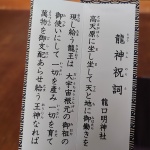 龍神祝詞
龍口明神社
高天原に坐し坐して天と地に御働きを
現し給う龍王は大宇宙根元の御祖の
御使いにして一切を産み一切を育て
萬物を御支配あらせ給う王神なれば